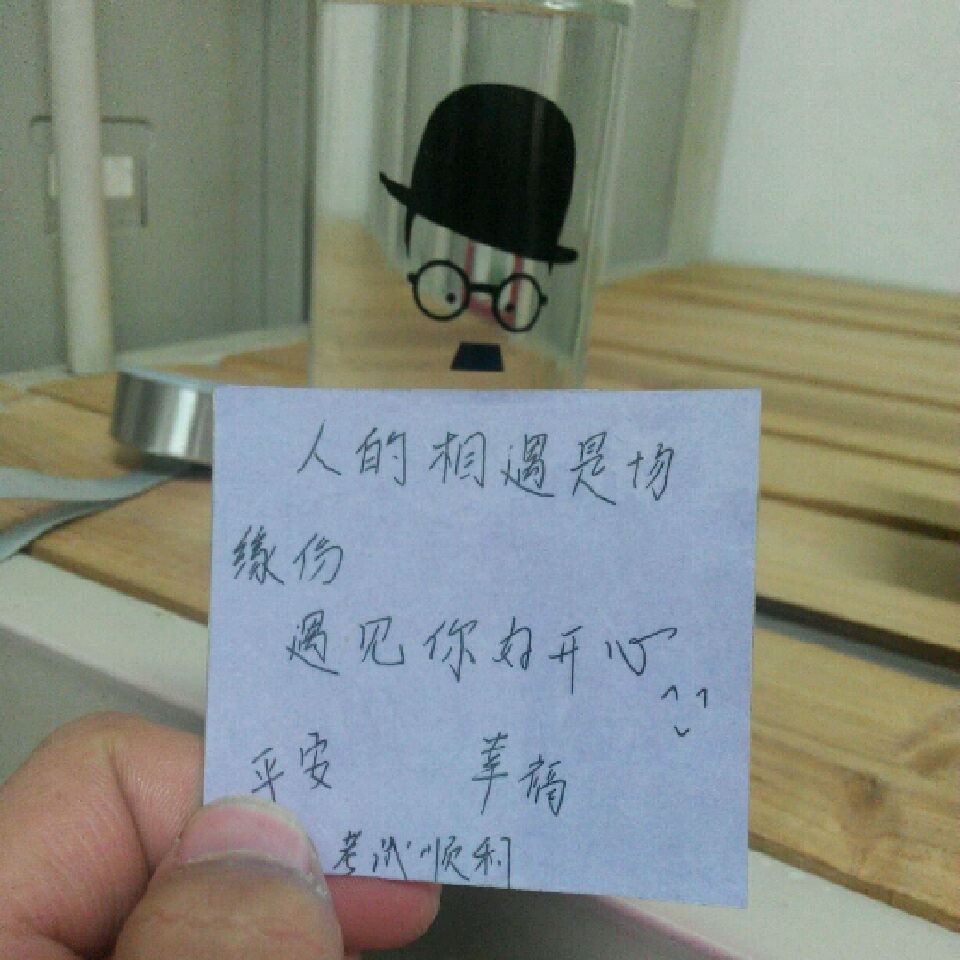 人的相遇是场
缘份
遇见你好开心
^ ^
平安 幸福
考试顺利